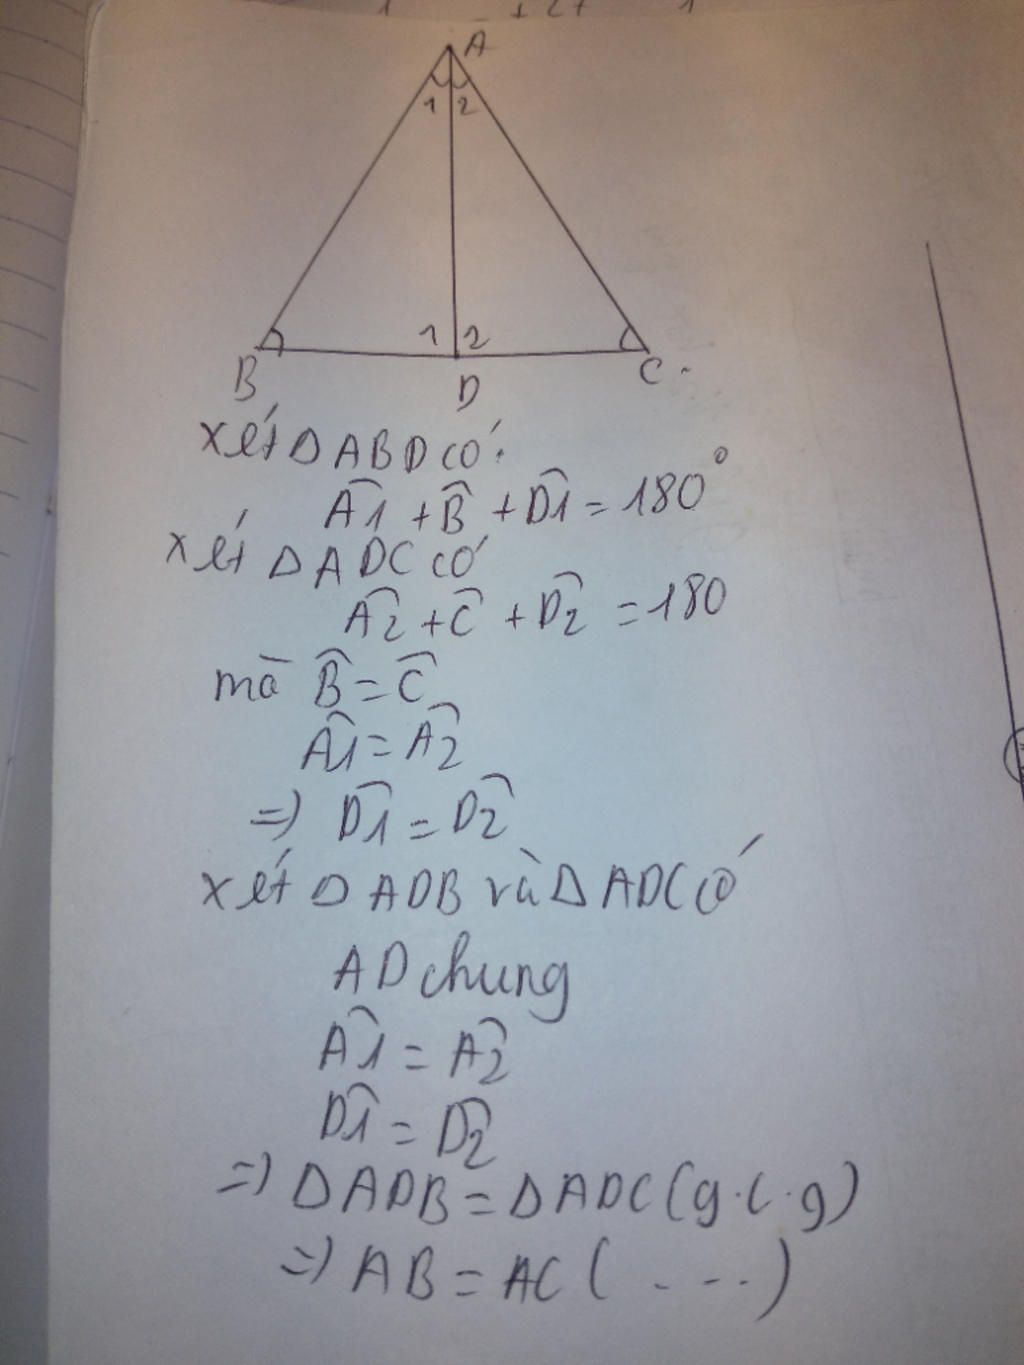 A
1 2
1 2
B
D
C.
xét Δ ABD có:
Â1 + B̂ + D̂1 = 180°
xét Δ ADC có
Â2 + Ĉ + D̂2 = 180
mà B̂ = Ĉ
Â1 = Â2
=) D̂1 = D̂2
xét Δ ADB và Δ ADC có
AD chung
Â1 = Â2
D̂1 = D̂2
=) Δ ADB = Δ ADC (g.c.g)
=) AB = AC ( ... )